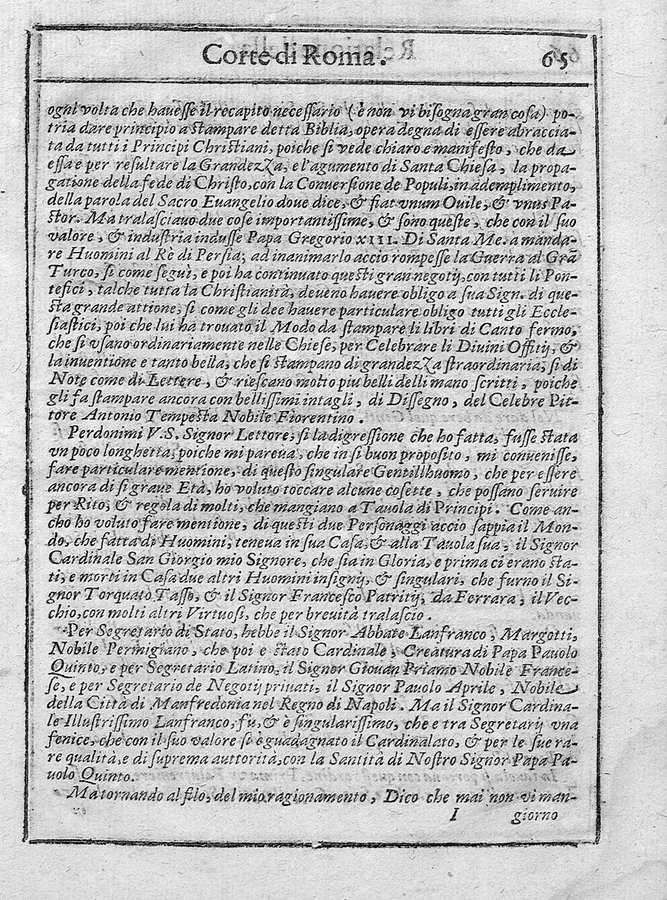 Corte di Roma. 65
ogni volta che havesse il recapito necessario (è non vi bisogna gran cosa) po-
tria dare principio a stampare detta Biblia, opera degna di essere abraccia-
ta da tutti i Principi Christiani, poiche si vede chiaro e manifesto, che da
essa e per resultare la Grandezza, e l'agumento di Santa Chiesa, la propa-
gatione della fede di Christo, con la Conversione de Populi, in adempimento,
della parola del Sacro Evangelio doue dice, & fiat vnum Ouile, & vnus Pa-
stor. Ma tralasciauo due cose importantissime, & sono queste, che con il suo
valore, & industria indusse Papa Gregorio XIII. Di Santa Me. a manda-
re Huomini al Rè di Persia; ad inanimarlo accio rompesse la Guerra al Grã
Turco, si come segui; e poi ha continuato questi gran negotij, con tutti li Pon-
tefici, talche tutta la Christianità, deueno hauere obligo a sua Sign. di que-
sta grande attione, si come gli dee hauere particulare obligo tutti gli Eccle-
siastici, poi che lui ha trouato il Modo da stampare li libri di Canto fermo,
che si vsano ordinariamente nelle Chiese, per Celebrare li Diuini Offitij, &
la inuentione e tanto bella, che si stampano di grandezza straordinaria, si di
Note come di Lettere, & riescano molto piu belli delli mano scritti, poiche
gli fa stampare ancora con bellissimi intagli, di Dissegno, del Celebre Pit-
tore Antonio Tempesta Nobile Fiorentino.
Perdonimi V. S. Signor Lettore, si la digressione che ho fatta, fusse stata
vn poco longhetta, poiche mi pareua, che in si buon proposito, mi conuenisse,
fare particulare mentione, di questo singulare Gentilhuomo, che per essere
ancora di si graue Età, ho voluto toccare alcune cosette, che possano seruire
per Rito, & regola di molti, che mangiano a Tauola di Principi. Come an-
cho ho voluto fare mentione, di questi due Personaggi accio sappia il Mon-
do, che fatta di Huomini, teneua in sua Casa, & alla Tauola sua, il Signor
Cardinale San Giorgio mio Signore, che sia in Gloria, e prima ci erano sta-
ti, e morti in Casa due altri Huomini insignij, & singulari, che furno il Si-
gnor Torquato Tasso, & il Signor Francesco Patritij, da Ferrara, il Vec-
chio, con molti altri Virtuosi, che per breuità tralascio.
Per Segretario di Stato, hebbe il Signor Abbate Lanfranco, Margotti,
Nobile Permigiano, che poi e stato Cardinale, Creatura di Papa Pauolo
Quinto, e per Segretario Latino, il Signor Giouan Priamo Nobile France-
se, e per Segretario de Negotij priuati, il Signor Pauolo Aprile, Nobile
della Città di Manfredonia nel Regno di Napoli. Ma il Signor Cardina-
le Illustrissimo Lanfranco, fu, & è singularissimo, che e tra Segretarij vna
fenice, che con il suo valore si è guadagnato il Cardinalato, & per le sue ra-
re qualità, e di suprema auttorità, con la Santità di Nostro Signor Papa Pa-
uolo Quinto.
Ma tornando al filo, del mio ragionamento, Dico che mai non vi man-
I giorno